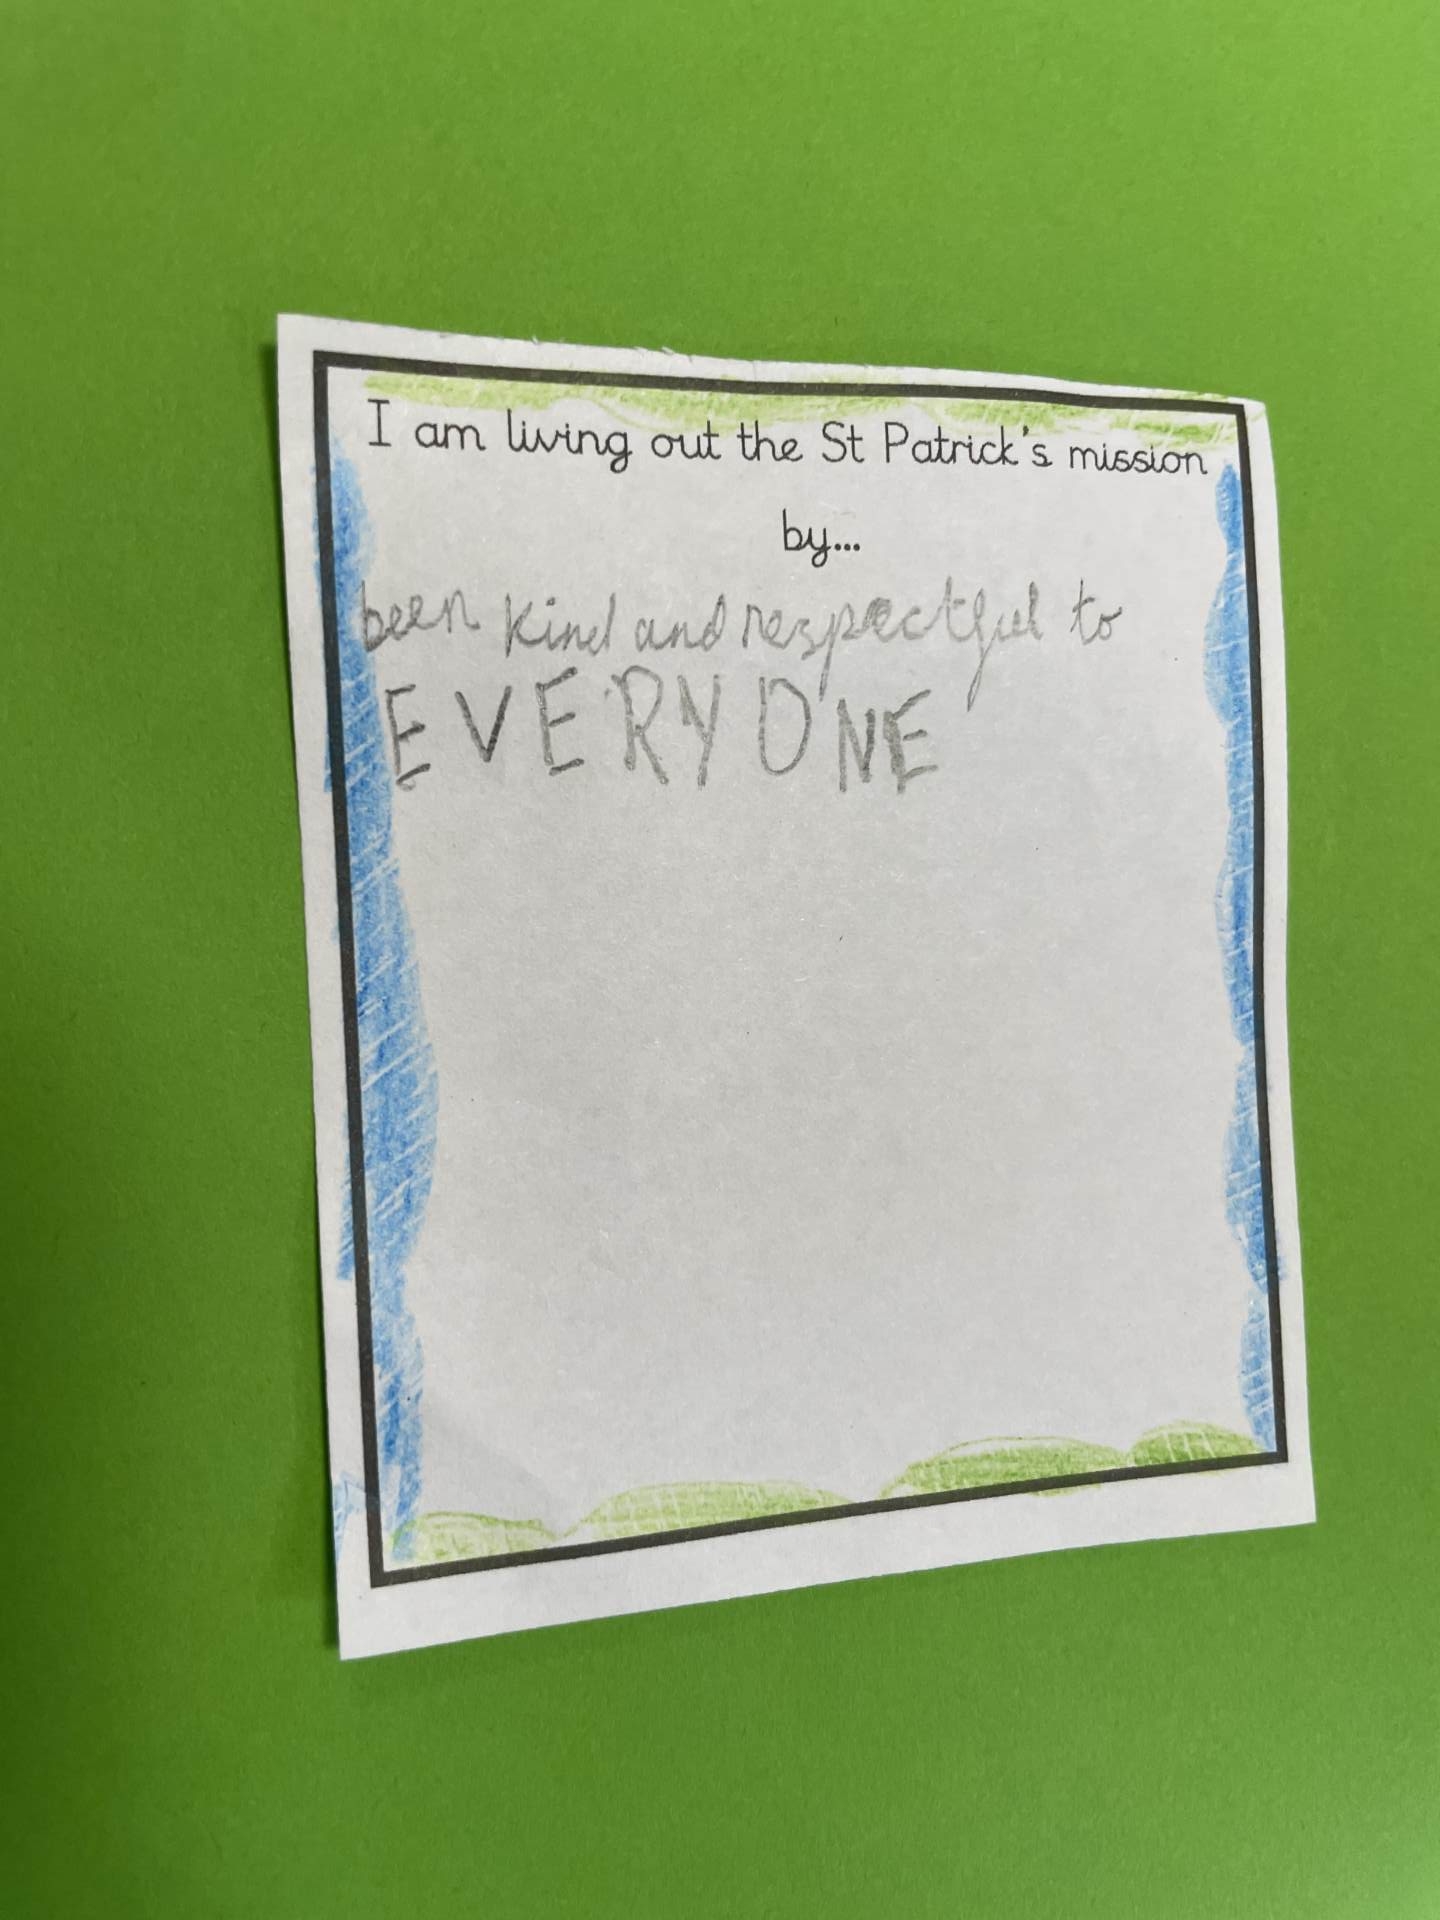 I am living out the St Patrick's mission
by...
been kind and respectful to
EVERYONE